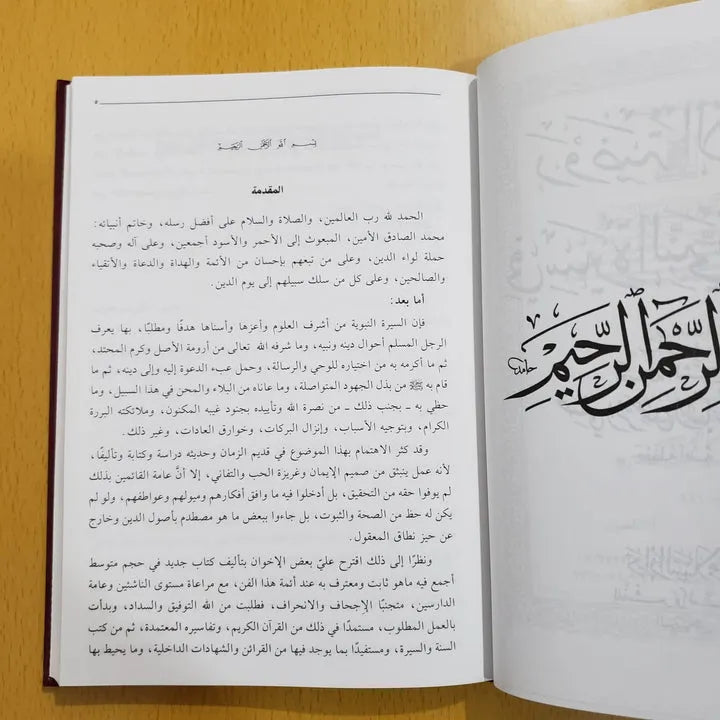 ٥
بسم الله الرحمن الرحيم
المقدمة
الحمد لله رب العالمين، والصلاة والسلام على أفضل رسله، وخاتم أنبيائه:
محمد الصادق الأمين، المبعوث إلى الأحمر والأسود أجمعين، وعلى آله وصحبه
حملة لواء الدين، وعلى من تبعهم بإحسان من الأئمة والهداة والدعاة والأتقياء
والصالحين، وعلى كل من سلك سبيلهم إلى يوم الدين.
أما بعد:
فإن السيرة النبوية من أشرف العلوم وأعزها وأسناها هدفًا ومطلبًا، بها يعرف
الرجل المسلم أحوال دينه ونبيه، وما شرفه الله تعالى من أرومة الأصل وكرم المحتد،
ثم ما أكرمه به من اختياره للوحي والرسالة، وحمل عبء الدعوة إليه وإلى دينه، ثم ما
قام به ﷺ من بذل الجهود المتواصلة، وما عاناه من البلاء والمحن في هذا السبيل، وما
حظي به ـ بجنب ذلك ـ من نصرة الله وتأييده بجنود غيبه المكنون، وملائكته البررة
الكرام، وبتوجيه الأسباب، وإنزال البركات، وخوارق العادات، وغير ذلك.
وقد كثر الاهتمام بهذا الموضوع في قديم الزمان وحديثه دراسة وكتابة وتأليفًا،
لأنه عمل ينبثق من صميم الإيمان وغريزة الحب والتفاني، إلا أنَّ عامة القائمين بذلك
لم يوفوا حقه من التحقيق، بل أدخلوا فيه ما وافق أفكارهم وميولهم وعواطفهم، ولو لم
يكن له حظ من الصحة والثبوت، بل جاءوا ببعض ما هو مصطدم بأصول الدين وخارج
عن حيز نطاق المعقول.
ونظرًا إلى ذلك اقترح عليّ بعض الإخوان بتأليف كتاب جديد في حجم متوسط
أجمع فيه ماهو ثابت ومعترف به عند أئمة هذا الفن، مع مراعاة مستوى الناشئين وعامة
الدارسين، متجنبًا الإجحاف والانحراف، فطلبت من الله التوفيق والسداد، وبدأت
بالعمل المطلوب، مستمدًا في ذلك من القرآن الكريم، وتفاسيره المعتمدة، ثم من كتب
السنة والسيرة، ومستفيدًا بما يوجد فيها من القرائن والشهادات الداخلية، وما يحيط بها
الرحمن الرحيم
حامد